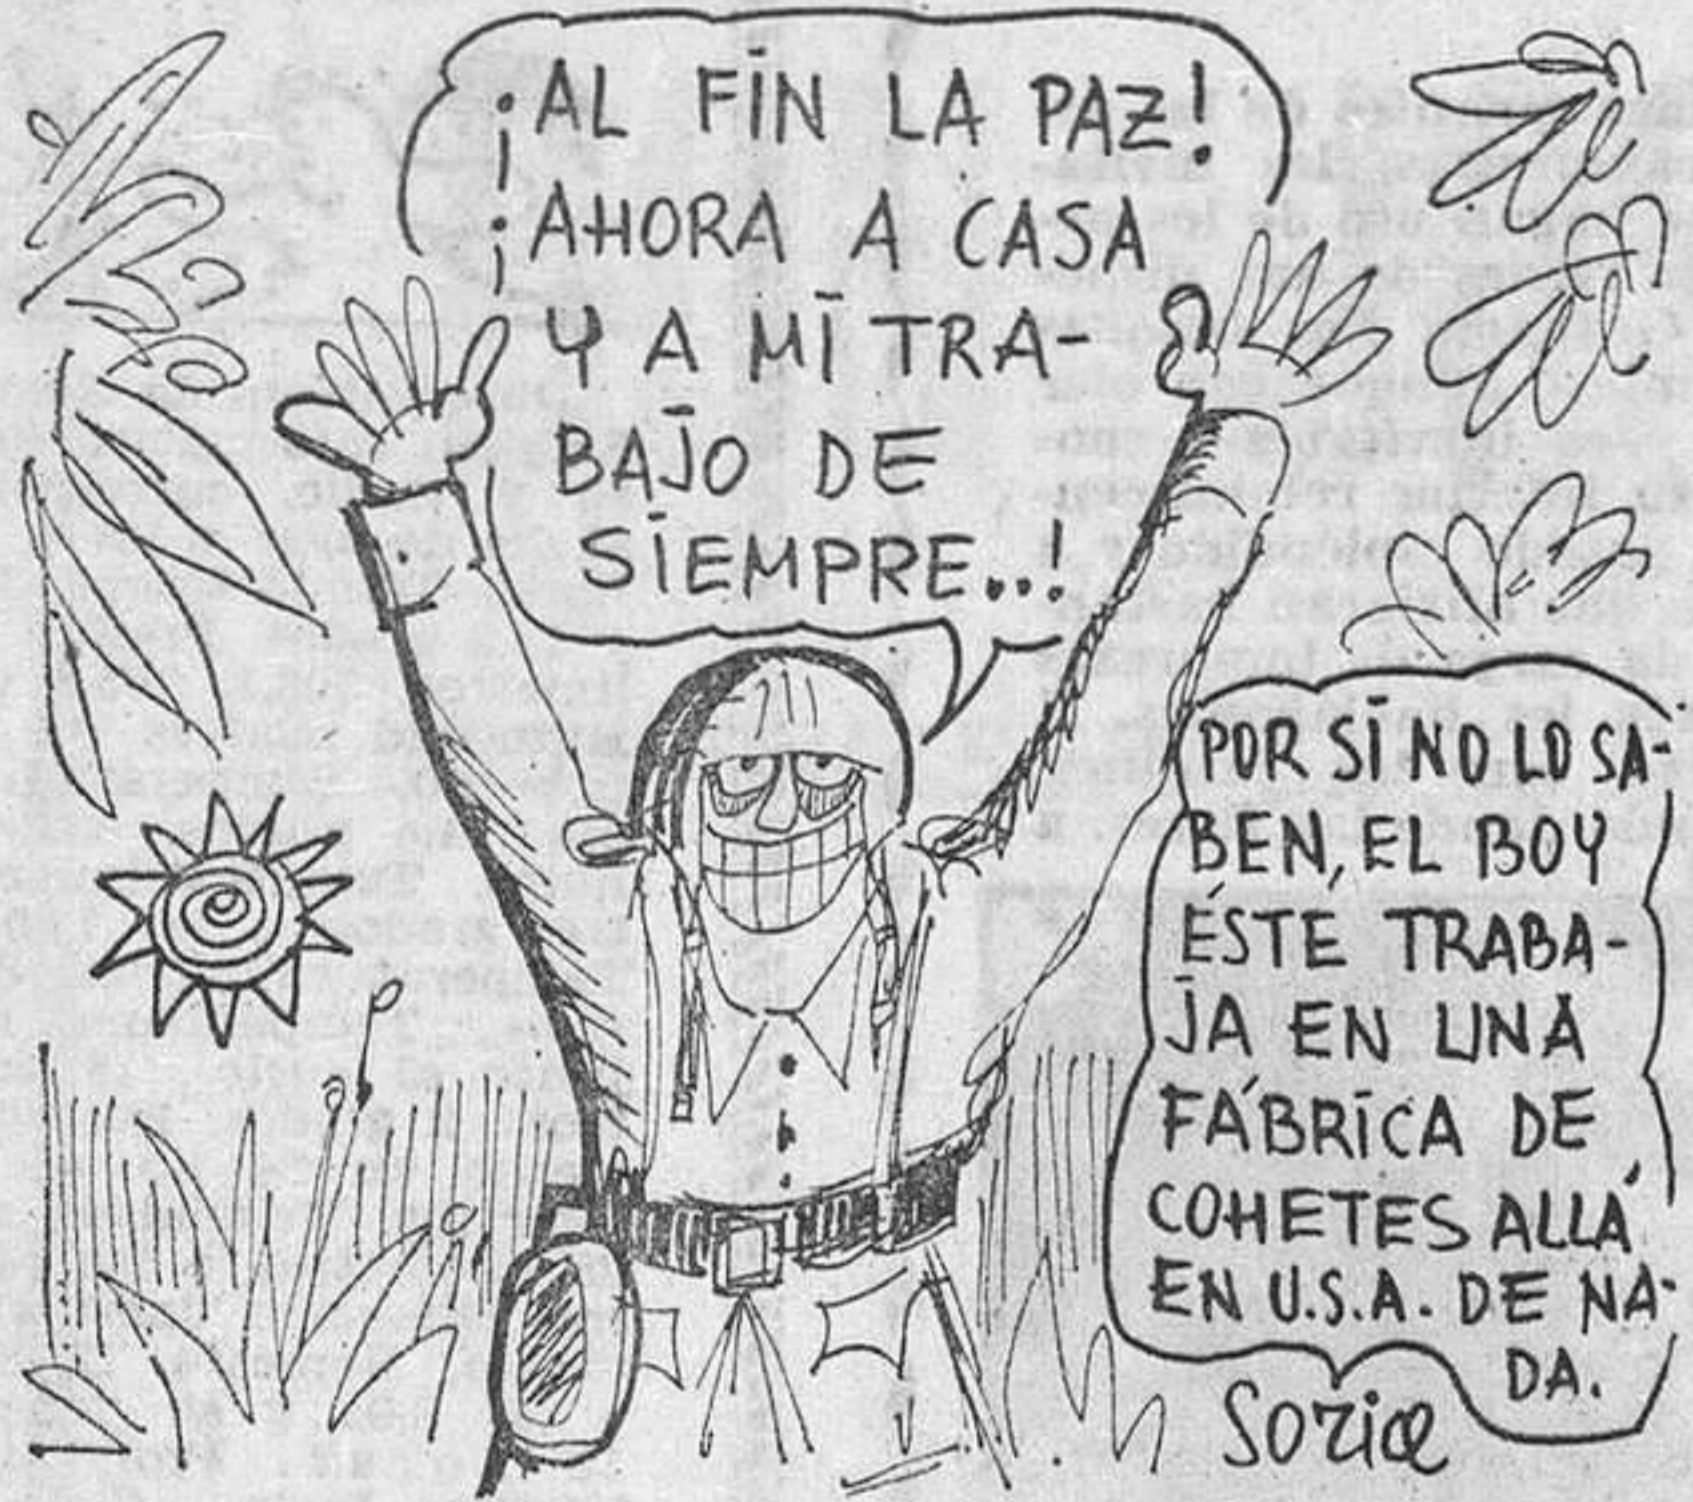 ¡AL FIN LA PAZ!
¡AHORA A CASA
Y A MI TRA-
BAJO DE
SIEMPRE..!
POR SI NO LO SA-
BEN, EL BOY
ÉSTE TRABA-
JA EN UNA
FÁBRICA DE
COHETES ALLÁ
EN U.S.A. DE NA-
DA.
Soria